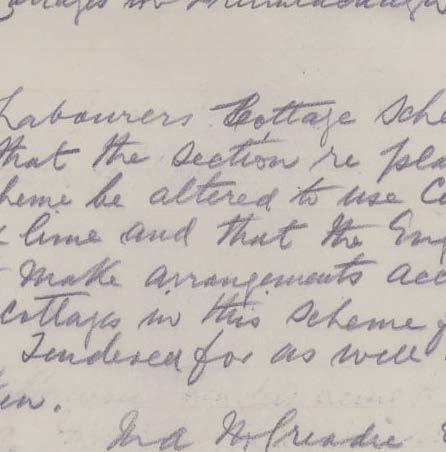 Cottages in
Labourers Cottage Sche
that the section re pla
heme be altered to use Ce
lime and that the Eng
make arrangements acc
cottages in this scheme
Tendered for as well
en.